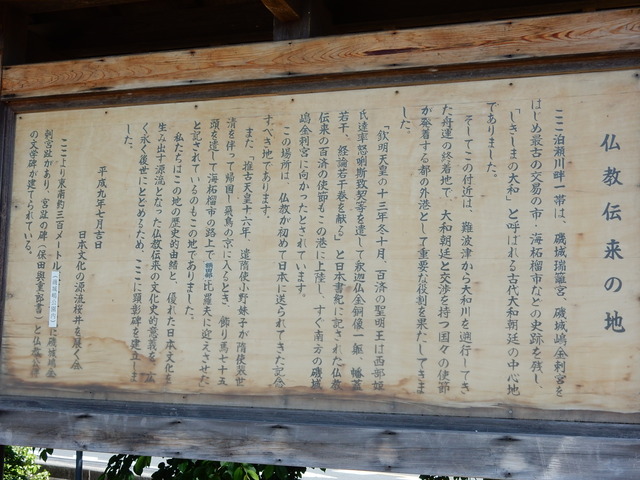 仏教伝来の地
ここ泊瀬川畔一帯は、磯城瑞籬宮、磯城嶋金刺宮を
はじめ最古の交易の市・海柘榴市などの史跡を残し、
「しきしまの大和」と呼ばれる古代大和朝廷の中心地
でありました。
そしてこの付近は、難波津から大和川を遡行してき
た舟運の終着地で、大和朝廷と交渉を持つ国々の使節
が発着する都の外港として重要な役割を果たしてきま
した。
「欽明天皇の十三年冬十月、百済の聖明王は西部姫
氏達率怒唎斯致契等を遣して釈迦仏金銅像一躯、幡蓋
若干、経論若干巻を献る」と日本書紀に記された仏教
伝来の百済の使節もこの港に上陸し、すぐ南方の磯城
嶋金刺宮に向かったとされています。
この場所は、仏教が初めて日本に送られてきた記念
すべき地であります。
また、推古天皇十六年、遣隋使小野妹子が隋使裴世
清を伴って帰国し飛鳥の京に入るとき、飾り馬七十五
頭を遣して海柘榴市の路上で額田部比羅夫に迎えさせた
と記されているのもこの地でありました。
私たちはこの地の歴史的由緒と、優れた日本文化を
生み出す源流となった仏教伝来の文化史的意義を、広
く永く後世にとどめるため、ここに顕彰碑を建立しま
した。
平成九年七月吉日
日本文化の源流桜井を展く会
ここより東南約三百メートル(磯城嶋公園内)に磯城嶋金
刺宮趾があり、宮趾の碑(保田與重郎書)と仏教
の文学碑が建てられている。